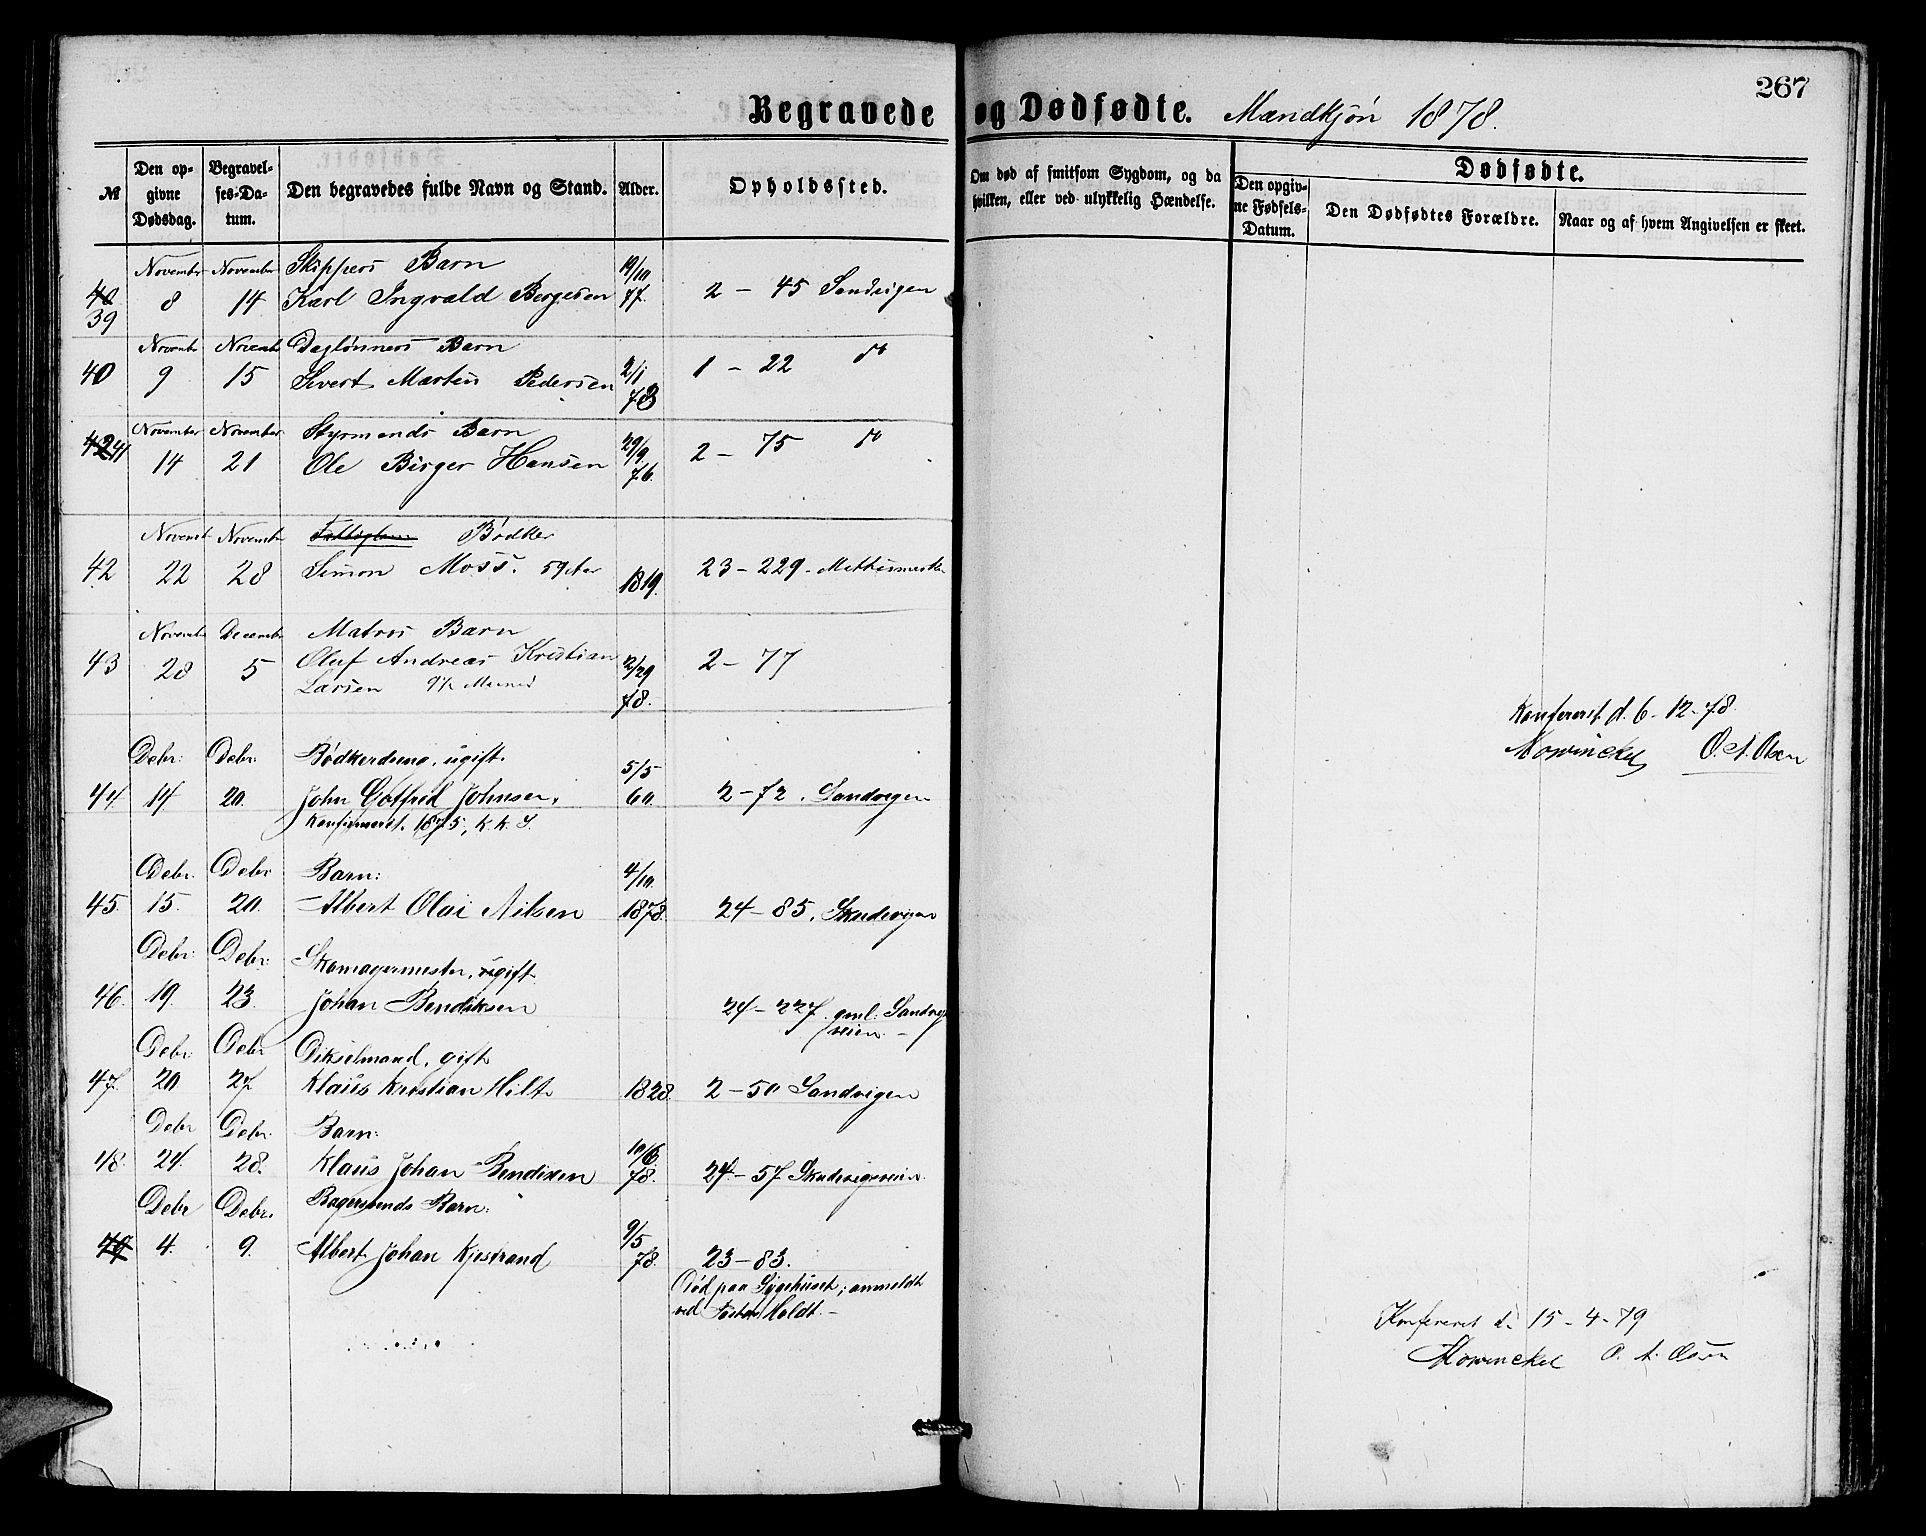 267
Begravede og Dødfødte. Mandkjøn 1878.
№ Den opgivne Dødsdag. Begravelses-Datum. Den begravedes fulde Navn og Stand. Alder. Opholdssted. Om død af smitsom Sygdom, og da hvilken, eller ved ulykkelig Hændelse. Dødfødte.
Den opgivne Fødsels-Datum. Den Dødfødtes Forældre. Naar og af hvem Angivelsen er skeet.
November November Skippers Barn 19/10
40 39 8 14 Karl Ingvald Bergesen 77. 2 - 45 Sandvigen
Novembr Novembr Daglønners Barn
40 9 15 Sivert Martin Pedersen 2/1 78 1 - 22 do
November November Styrmands Barn
42 41 14 21 Ole Birger Hansen 29/9 76. 2 - 75 do
Novembr Novembr Bødker
42 22 28 Simon Moss. 59 Aar 1819. 23 - 229 -
Novembr Decembr Matros Barn
43 28 5 Oluf Andreas Kristian 2 - 77
Larsen 78.
Konfereret d. 6 - 12 - 78.
Mowinckel O. A. Olsen
Debr: Debr: ugift. 5/5
44. 14 20. John Gotfred Johnsen. 60. 2 - 72. Sandvigen
Konfirmeret 1875, K. K. S.
Debr. Debr Barn: 4/10.
45. 15. 20. Albert Olai Nilsen 1878. 24 - 85. Skudevigen
Debr: Debr: Skomagermester, ugift.
46. 19. 23. Johan Bendiksen 24 - 227. gml: Sandvigs
veien. -
Debr: Debr gift
47. 20 27. Klaus Kristian Hilt 1828. 2 - 50 Sandvigen
Debr Debr. Barn:
48. 24. 28. Klaus Johan Bendixen 10/6 78. 24 - 57 Skudevigsveien.
Debr Debr. Bagersvends Barn:
49 4. 9. Albert Johan Kjøstrand 9/5 78. 23 - 83.
Død paa Sygehuset; anmeldt
ved Holdt. -
Konfereret d. 15 - 4 - 79
Mowinckel O. A. Olsen